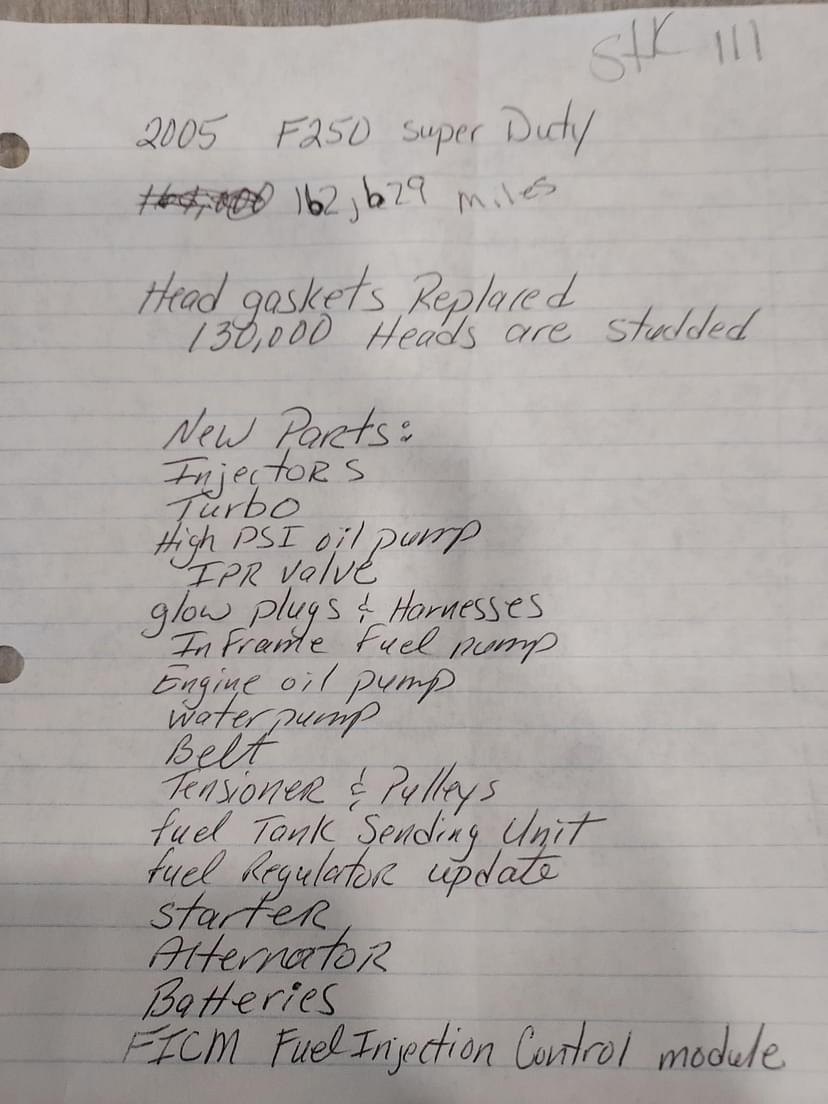 StK 111
2005 F250 Super Duty
162,629 miles
Head gaskets Replaced
130,000 Heads are studded
New Parts:
Injectors
Turbo
High PSI oil pump
IPR valve
glow plugs & Harnesses
InFrame Fuel pump
Engine oil pump
water pump
Belt
Tensioner & Pulleys
fuel Tank Sending Unit
fuel Regulator update
starter
Alternator
Batteries
FICM Fuel Injection Control module